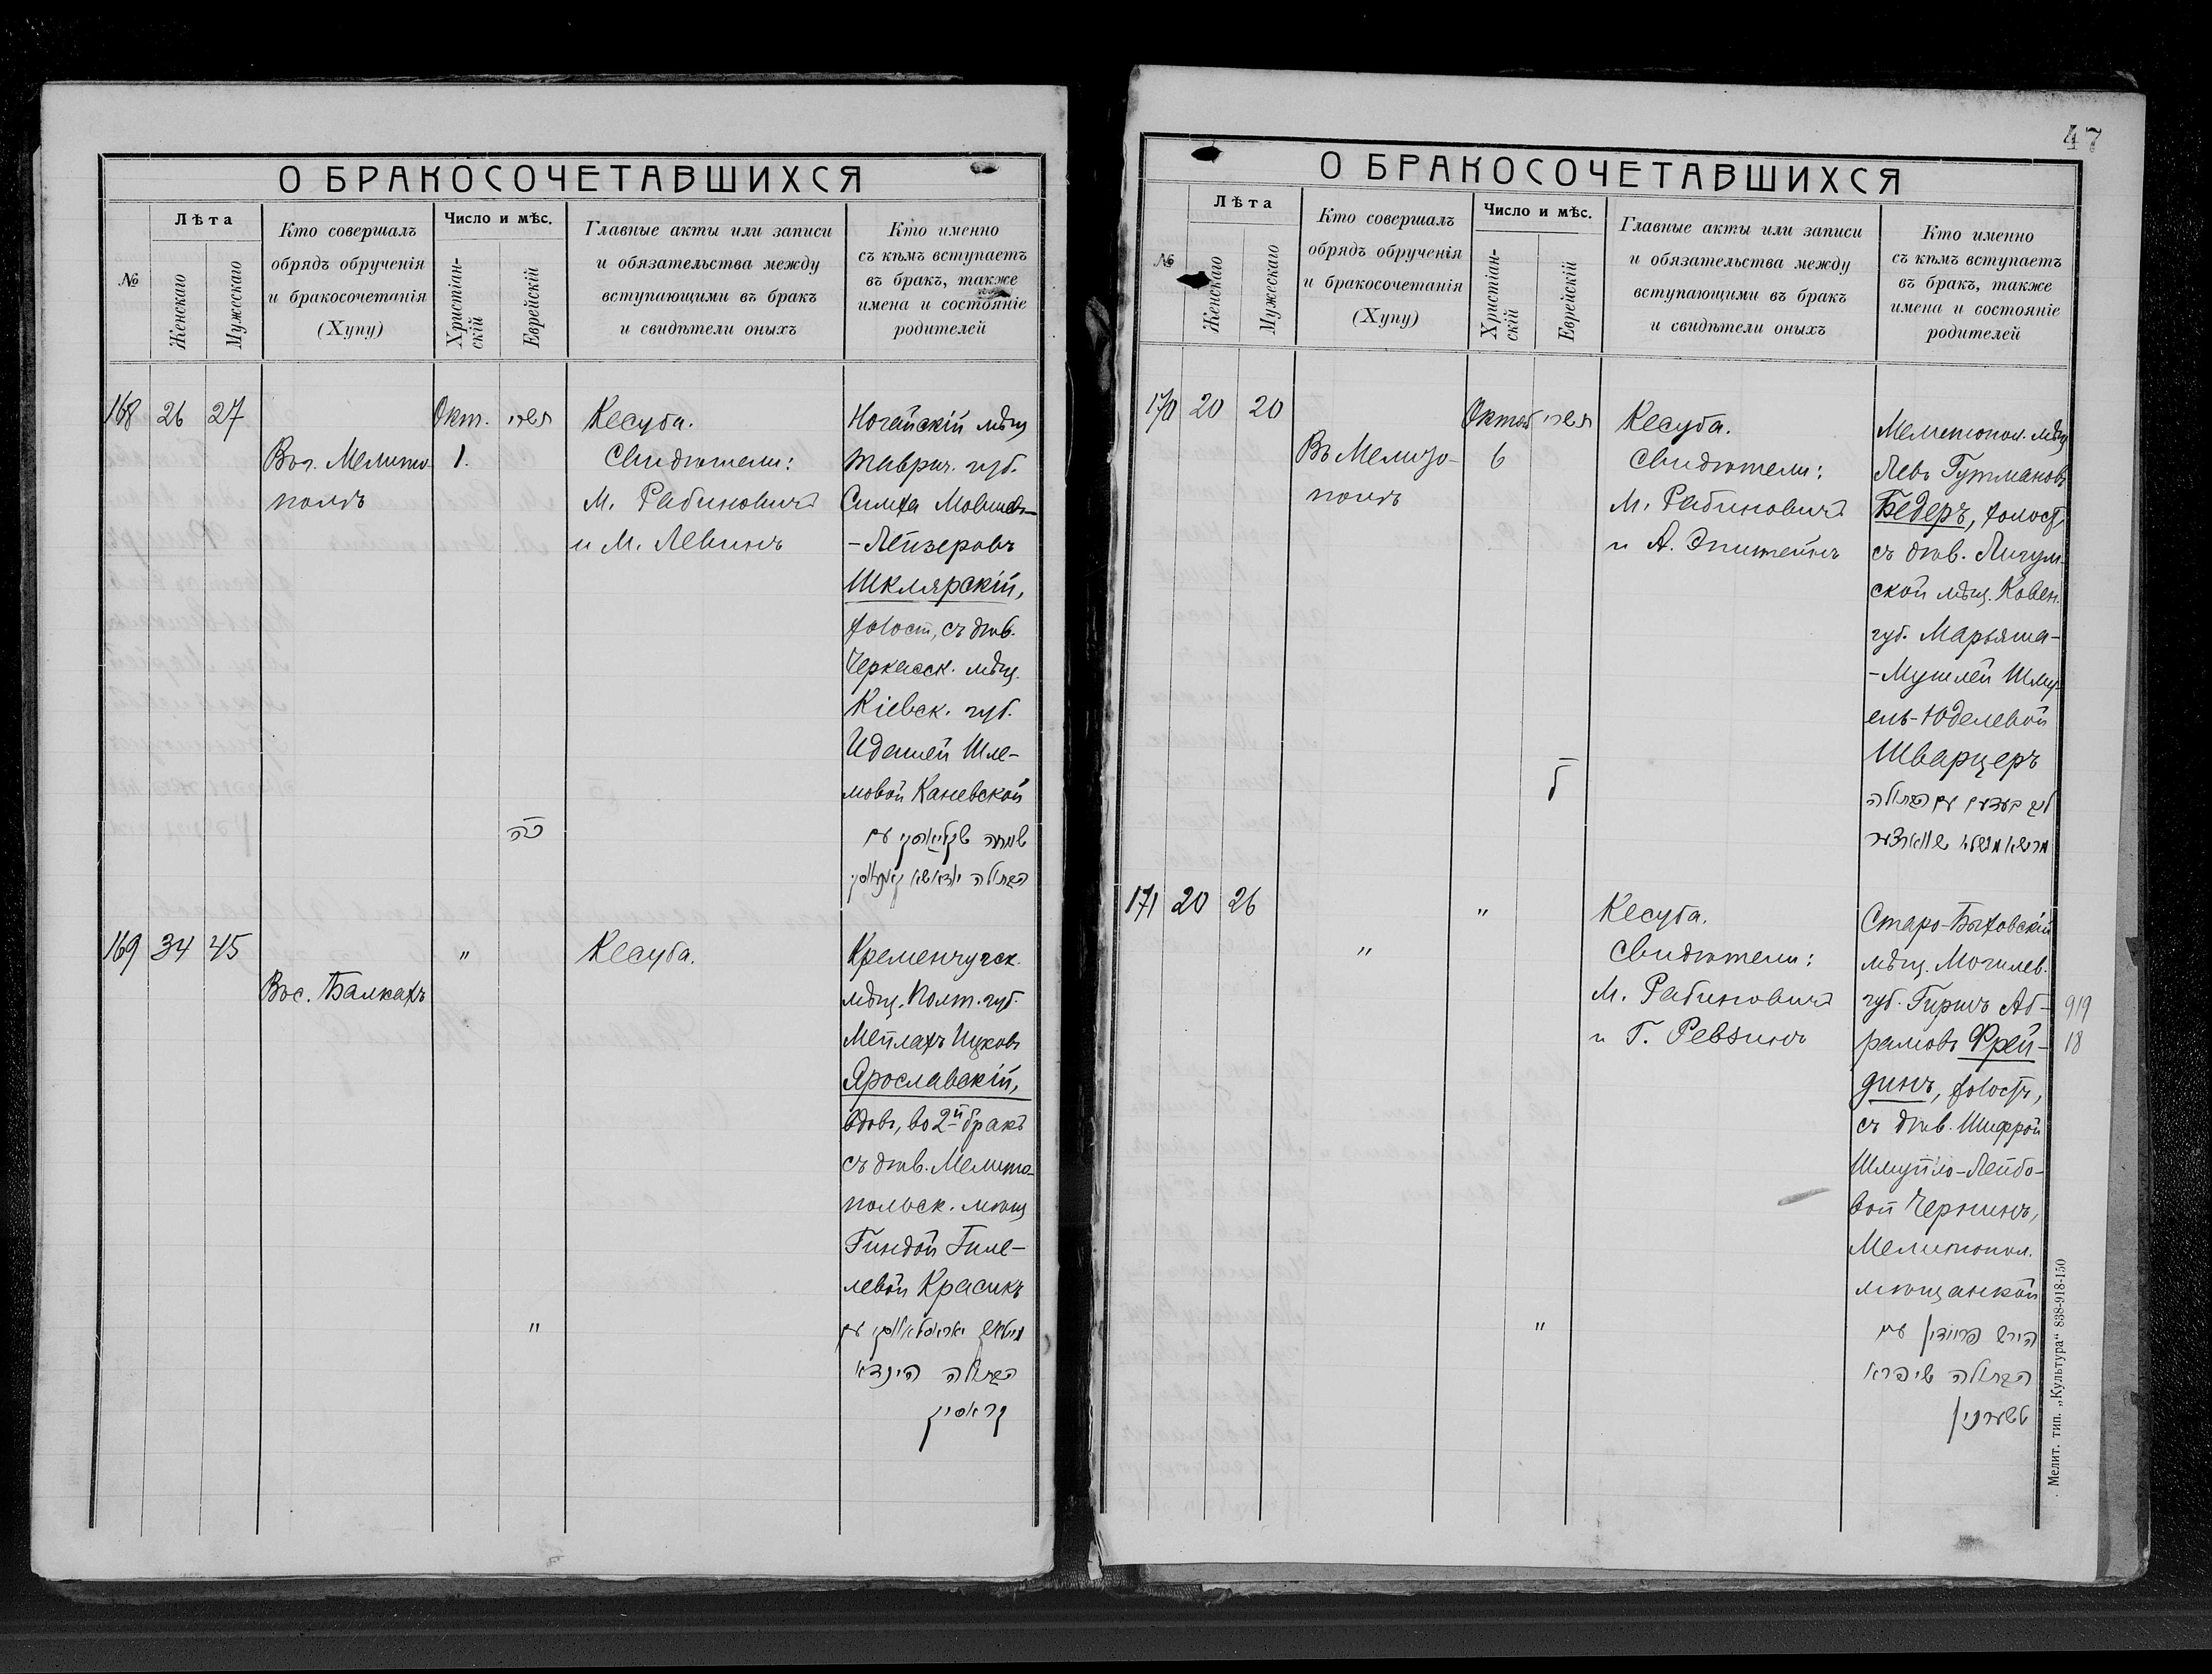 О БРАКОСОЧЕТАВШИХСЯ
№
Лѣта
Женскаго
Мужескаго
Кто совершалъ
обрядъ обрученія
и бракосочетанія
(Хупу)
Число и мѣс.
Христіан-
скій
Еврейскій
Главные акты или записи
и обязательства между
вступающими въ бракъ
и свидѣтели оныхъ
Кто именно
съ кѣмъ вступаетъ
въ бракъ, также
имена и состояніе
родителей
168 26 27
Въ г. Мелито
полѣ
Окт.
1.
תשרי
כה
Кесуба.
Свидѣтели:
М. Рабиновичъ
и М. Левинъ
Ногайскій мѣщ
Таврич. губ.
Симха Мовшев-
-Лейзеровъ
Шклярскій,
холост, съ дѣв.
Черкасск. мѣщ.
Кіевск. губ.
Идашей Шле-
мовой Каневской
שמחה שקליארסקי עם
הבתולה
169 34 45
Въ с. Балкахъ
"
"
Кесуба.
Кременчугск.
мѣщ. Полт. губ.
Мейлахъ Ицковъ
Ярославскій,
вдовъ, во 2й бракъ
съ дѣв. Мелито-
польск. мѣщ
Гиндой Гиле-
левой Красикъ
יאראסלאווסקי עם
הבתולה הינדא
קראסיק
47
О БРАКОСОЧЕТАВШИХСЯ
№
Лѣта
Женскаго
Мужескаго
Кто совершалъ
обрядъ обрученія
и бракосочетанія
(Хупу)
Число и мѣс.
Христіан-
скій
Еврейскій
Главные акты или записи
и обязательства между
вступающими въ бракъ
и свидѣтели оныхъ
Кто именно
съ кѣмъ вступаетъ
въ бракъ, также
имена и состояніе
родителей
170 20 20
Въ Мелито-
полѣ
Октяб
6
תשרי
ל
Кесуба.
Свидѣтели:
М. Рабиновичъ
и А. Эпштейнъ
Мелитопол. мѣщ
Левъ Гутмановъ
Бедеръ, холост,
съ дѣв. Лигум-
ской мѣщ. Ковен.
губ. Марьяша-
-Мушлей Шму-
ель-Юделевой
Шварцеръ
עם הבתולה
שווארצער
171 20 26
"
"
"
Кесуба.
Свидѣтели:
М. Рабиновичъ
и Г. Ревзинъ
Старо-Быховскій
мѣщ. Могилев.
губ. Гиршъ Аб-
рамовъ Фрей-
динъ, холостъ,
съ дѣв. Шифрой
Шмуйло-Лейбо-
вой Чернинъ,
Мелитопол.
мѣщанкой
הירש פריידין עם
הבתולה שיפרא
טשערנין
919
18
Мелит. тип. „Культура" 838-918-150